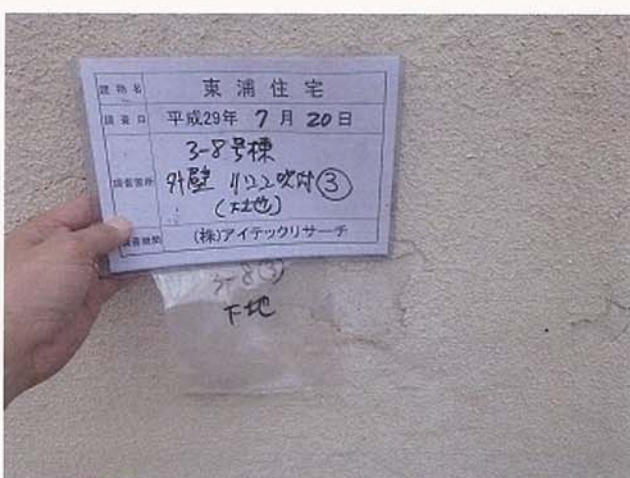 建物名 東浦住宅
調査日 平成29年 7月 20日
3-8号棟
調査箇所 外壁 リシン吹付③
(下地)
調査機関 (株)アイテックリサーチ
3-8③
下地